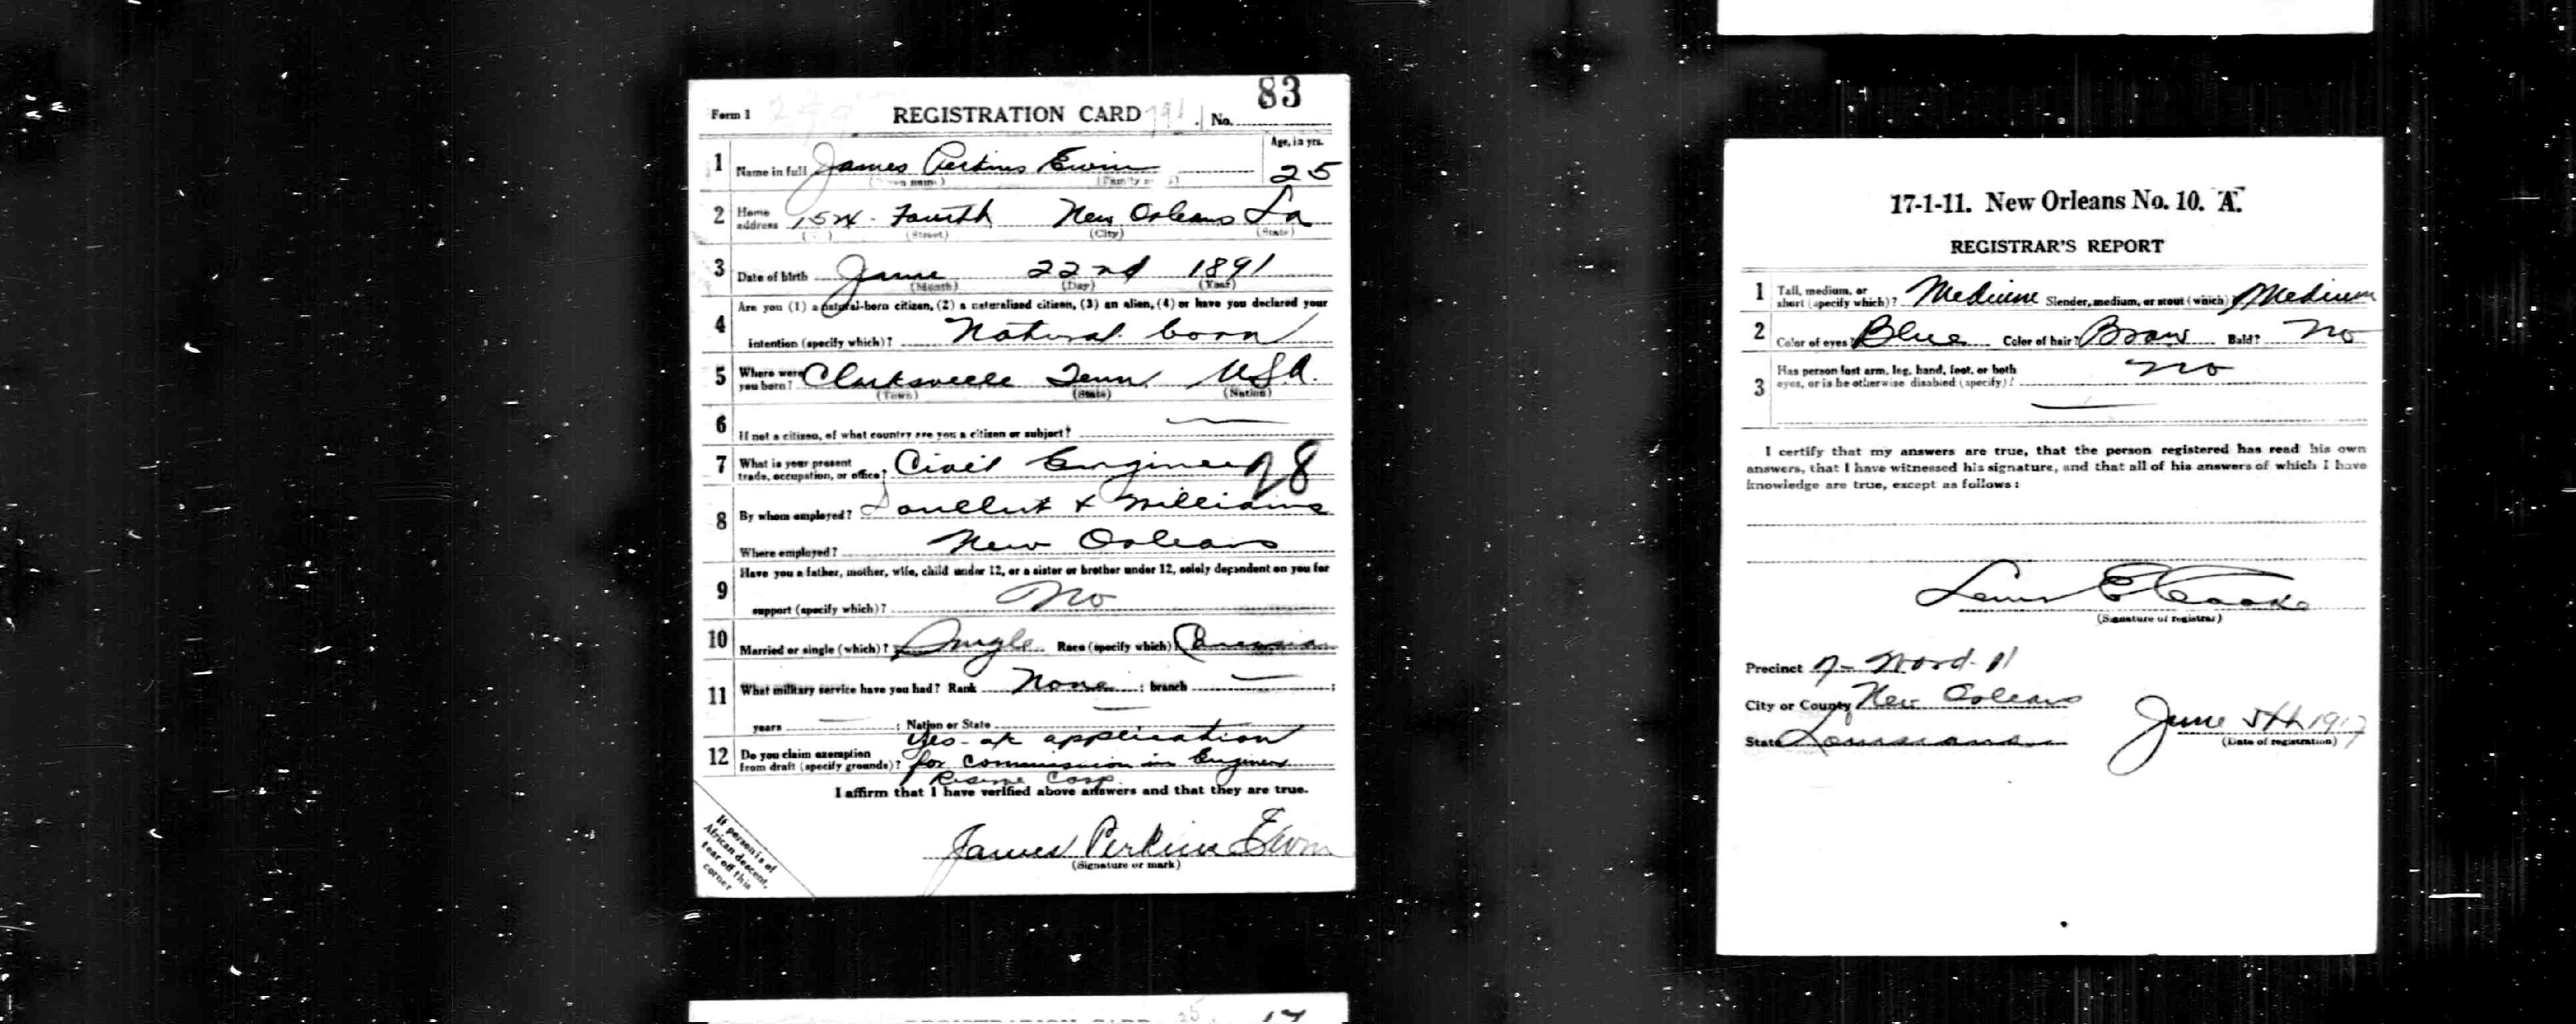 83
Form 1 REGISTRATION CARD No.
1 Name in full James Perkins Ewin Age, in yrs. 25
(Family
2 Home address Fourth New Orleans La
(Street) (City) (State)
3 Date of birth June 22nd 1891
(Month) (Day) (Year)
4 Are you (1) a natural-born citizen, (2) a naturalized citizen, (3) an alien, (4) or have you declared your
intention (specify which)? Natural born
5 Where were you born? Clarksville Tenn U.S.A.
(Town) (State) (Nation)
6 If not a citizen, of what country are you a citizen or subject?
7 What is your present trade, occupation, or office? Civil Engineer 28
8 By whom employed? & Williams
Where employed? New Orleans
9 Have you a father, mother, wife, child under 12, or a sister or brother under 12, solely dependent on you for
support (specify which)? No
10 Married or single (which)? Single Race (specify which)? Caucasian
11 What military service have you had? Rank None ; branch ;
years ; Nation or State
12 Do you claim exemption from draft (specify grounds)? Yes application
for commission in Engineer
Reserve Corp
I affirm that I have verified above answers and that they are true.
James Perkins Ewin
(Signature or mark)
If person is of
African descent,
tear off this
corner
17-1-11. New Orleans No. 10. "A".
REGISTRAR'S REPORT
1 Tall, medium, or short (specify which)? Medium Slender, medium, or stout (which)? Medium
2 Color of eyes? Blue Color of hair? Brown Bald? No
3 Has person lost arm, leg, hand, foot, or both
eyes, or is he otherwise disabled (specify)? No
I certify that my answers are true, that the person registered has read his own
answers, that I have witnessed his signature, and that all of his answers of which I have
knowledge are true, except as follows:
(Signature of registrar)
Precinct 7- Ward 11
City or County New Orleans
State Louisiana June 5th 1917
(Date of registration)
REGISTRATION CARD 17